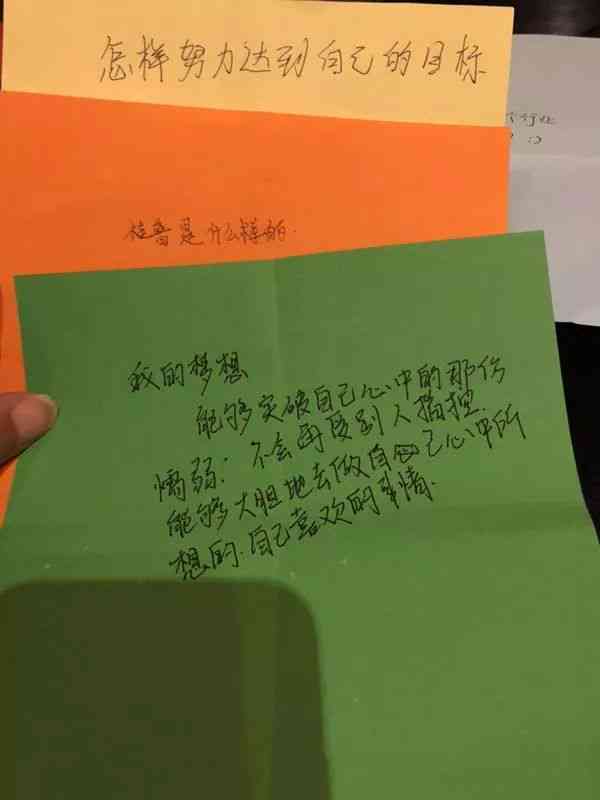 怎样努力达到自己的目标
信鲁是什么样的.
我的梦想
能够突破自己心中的那份
懦弱：不会再受别人指挥.
能够大胆地去做自己心中所
想的.自己喜欢的事情.